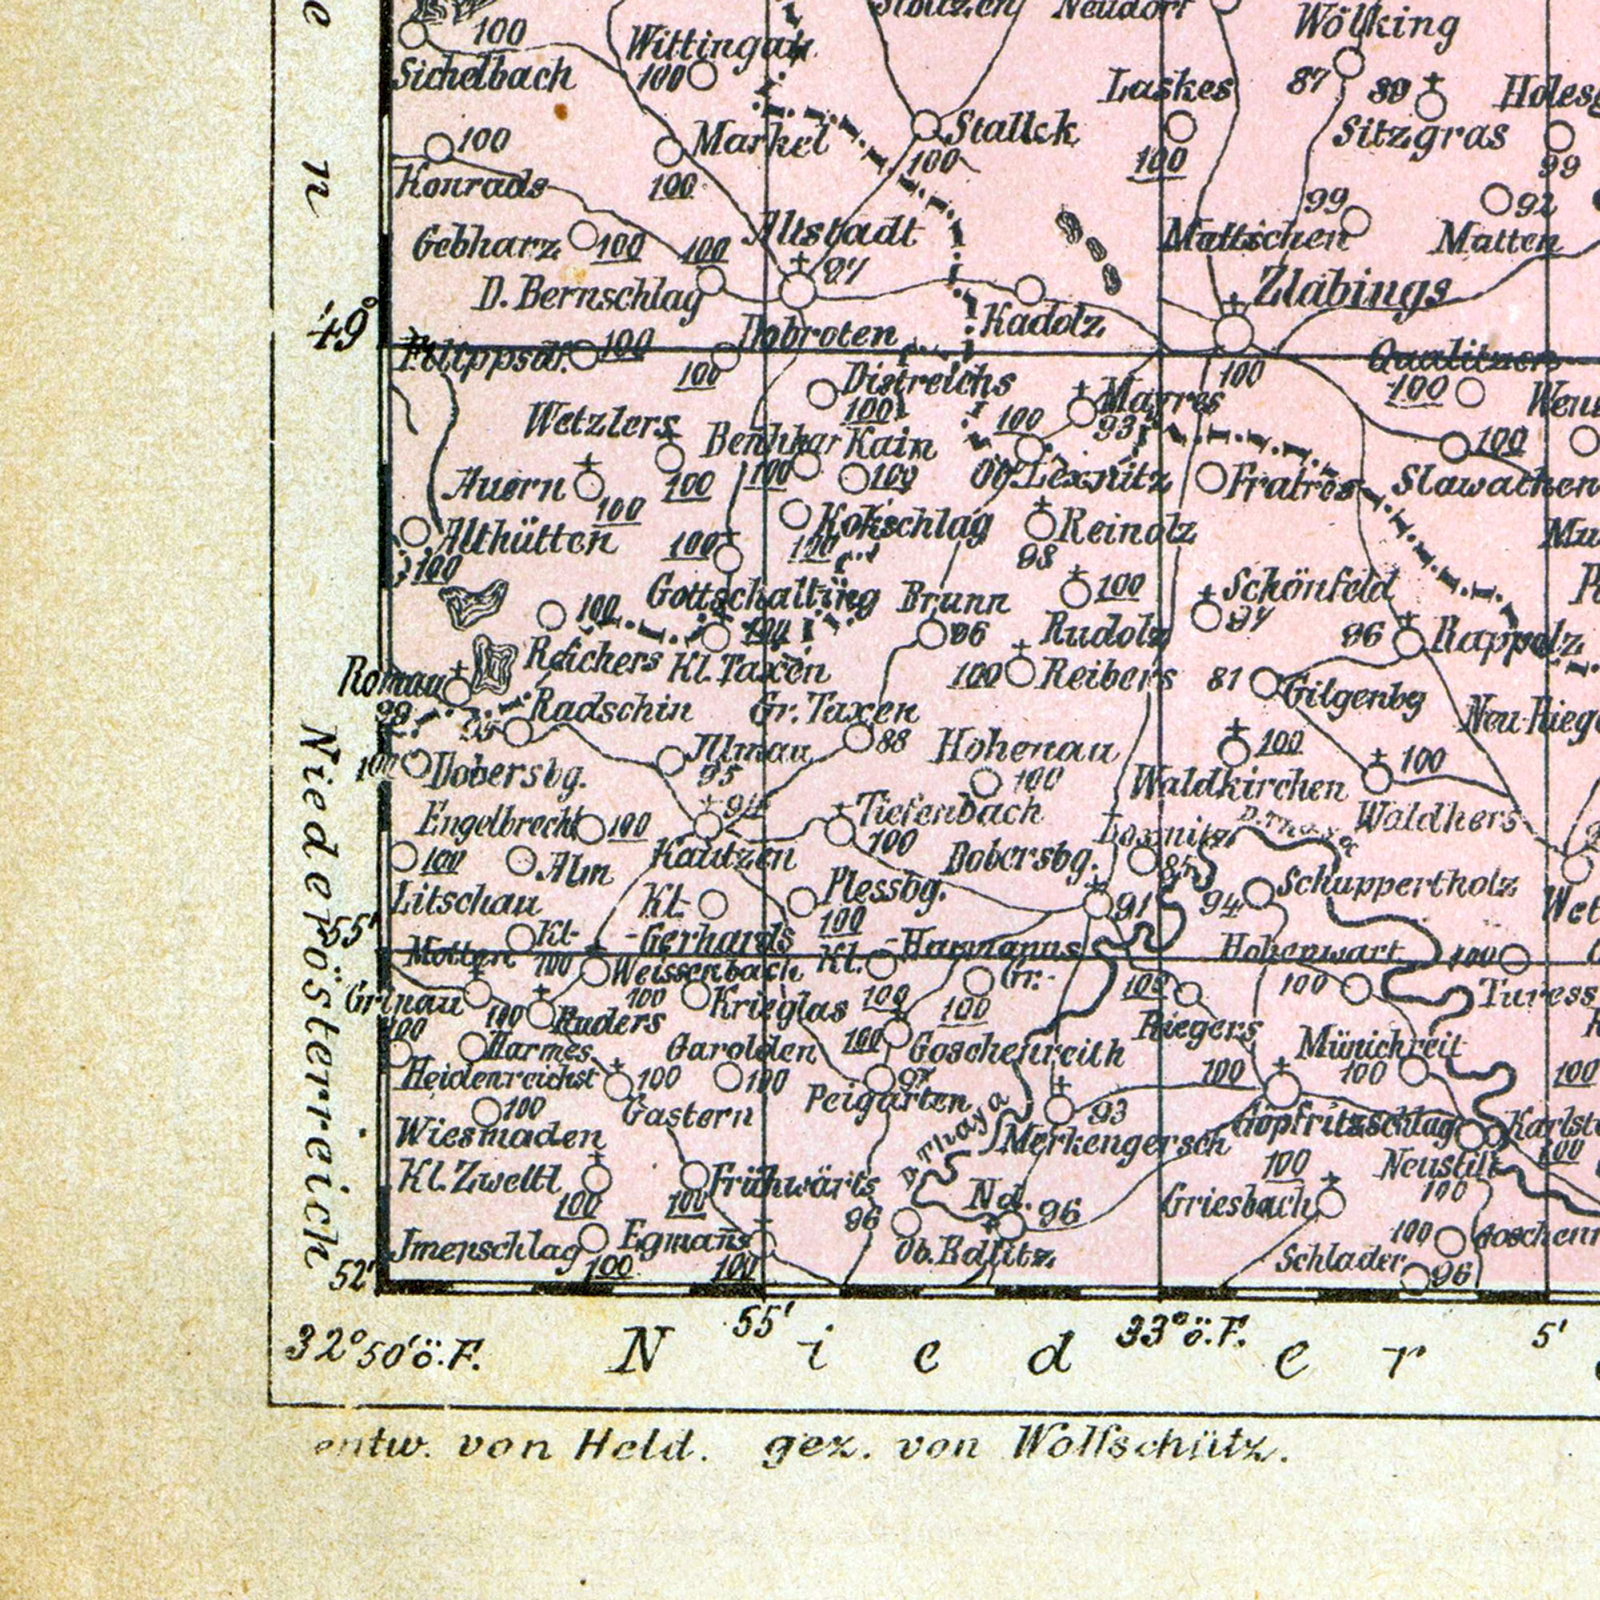 e
n
100
Sichelbach
Wittingau
100
Neudorf
Wölking
87
Laskes
100
99
Sitzgras
99
100
Konrads
Markel
100
Stalleck
100
99
Mattschen
92
Matten
Gebharz
100
100
Altstadt
97
D. Bernschlag
Kadolz
Zlabings
100
49°
Filippsdf.
100
Dobroten
100
Distreichs
100
Mayres
93
Qualitzen
100
Wetzlers
100
Kain
100
100
Ob. Lexnitz
Fratres
100
Slawathen
Auern
100
Althütten
100
100
Kokschlag
Reinolz
98
Gottschalling
100
Brunn
96
100
Rudolz
Schönfeld
97
96
Rappolz
100
Reichers
Kl. Taxen
100
Reibers
81
Gilgenbg
Romau
99
Radschin
Gr. Taxen
88
Illmau
95
Hohenau
100
100
Waldkirchen
100
Waldhers
Dobersbg.
Engelbrecht
100
94
Kautzen
Tiefenbach
100
D. Thaya
100
Alm
Dobersbg.
91
85
94
Schuppertholz
Litschau
Kl.
Gerharts
Plessbg.
100
55'
Motten
Kl.
100
Weissenbach
100
Kl.
Harmanns
Gr.
100
100
Hohenwart
100
100
Turess
Grünau
100
100
Ruders
Krieglas
100
Goschenreith
100
Riegers
Münichreit
100
Harmes
Garolden
100
Heidenreichst
100
Gastern
Peigarten
97
D. Thaya
93
Merkengersch
100
Göpfritzschlag
100
100
Wiesmaden
Kl. Zwettl
100
Frühwärts
100
Griesbach
100
Neustift
100
96
Nd.
96
Ob. Edlitz
Jmenschlag
100
Egmans
100
Schlader
96
100
52'
Niederösterreich
32° 50' ö. F.
55'
33° ö. F.
5'
N i e d e r
entw. von Held. gez. von Wolfschütz.